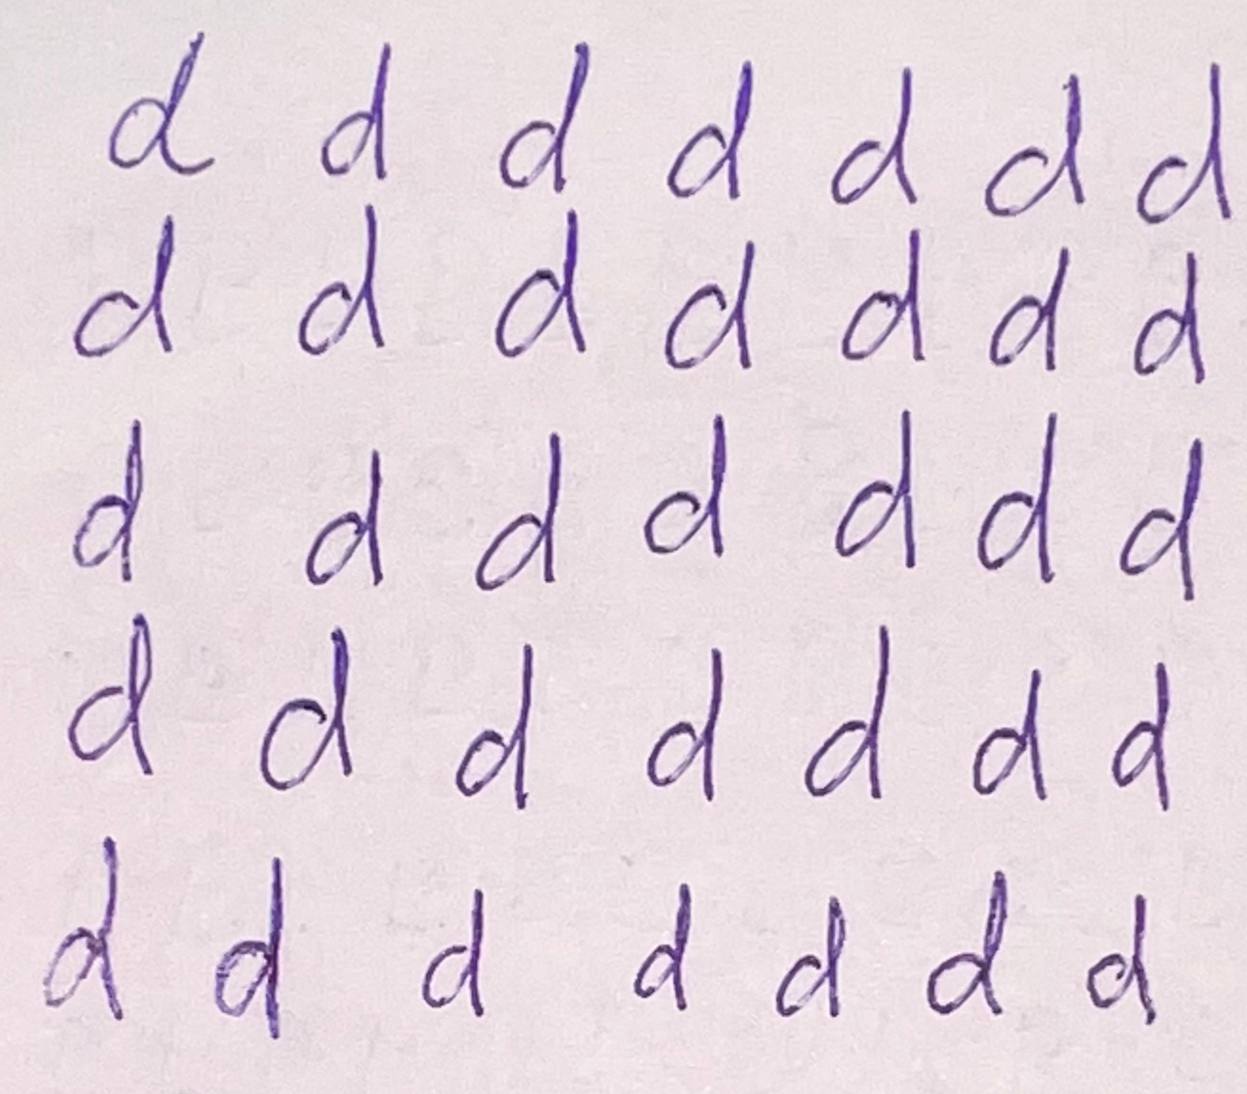 d d d d d d d
d d d d d d d
d d d d d d d
d d d d d d d
d d d d d d d